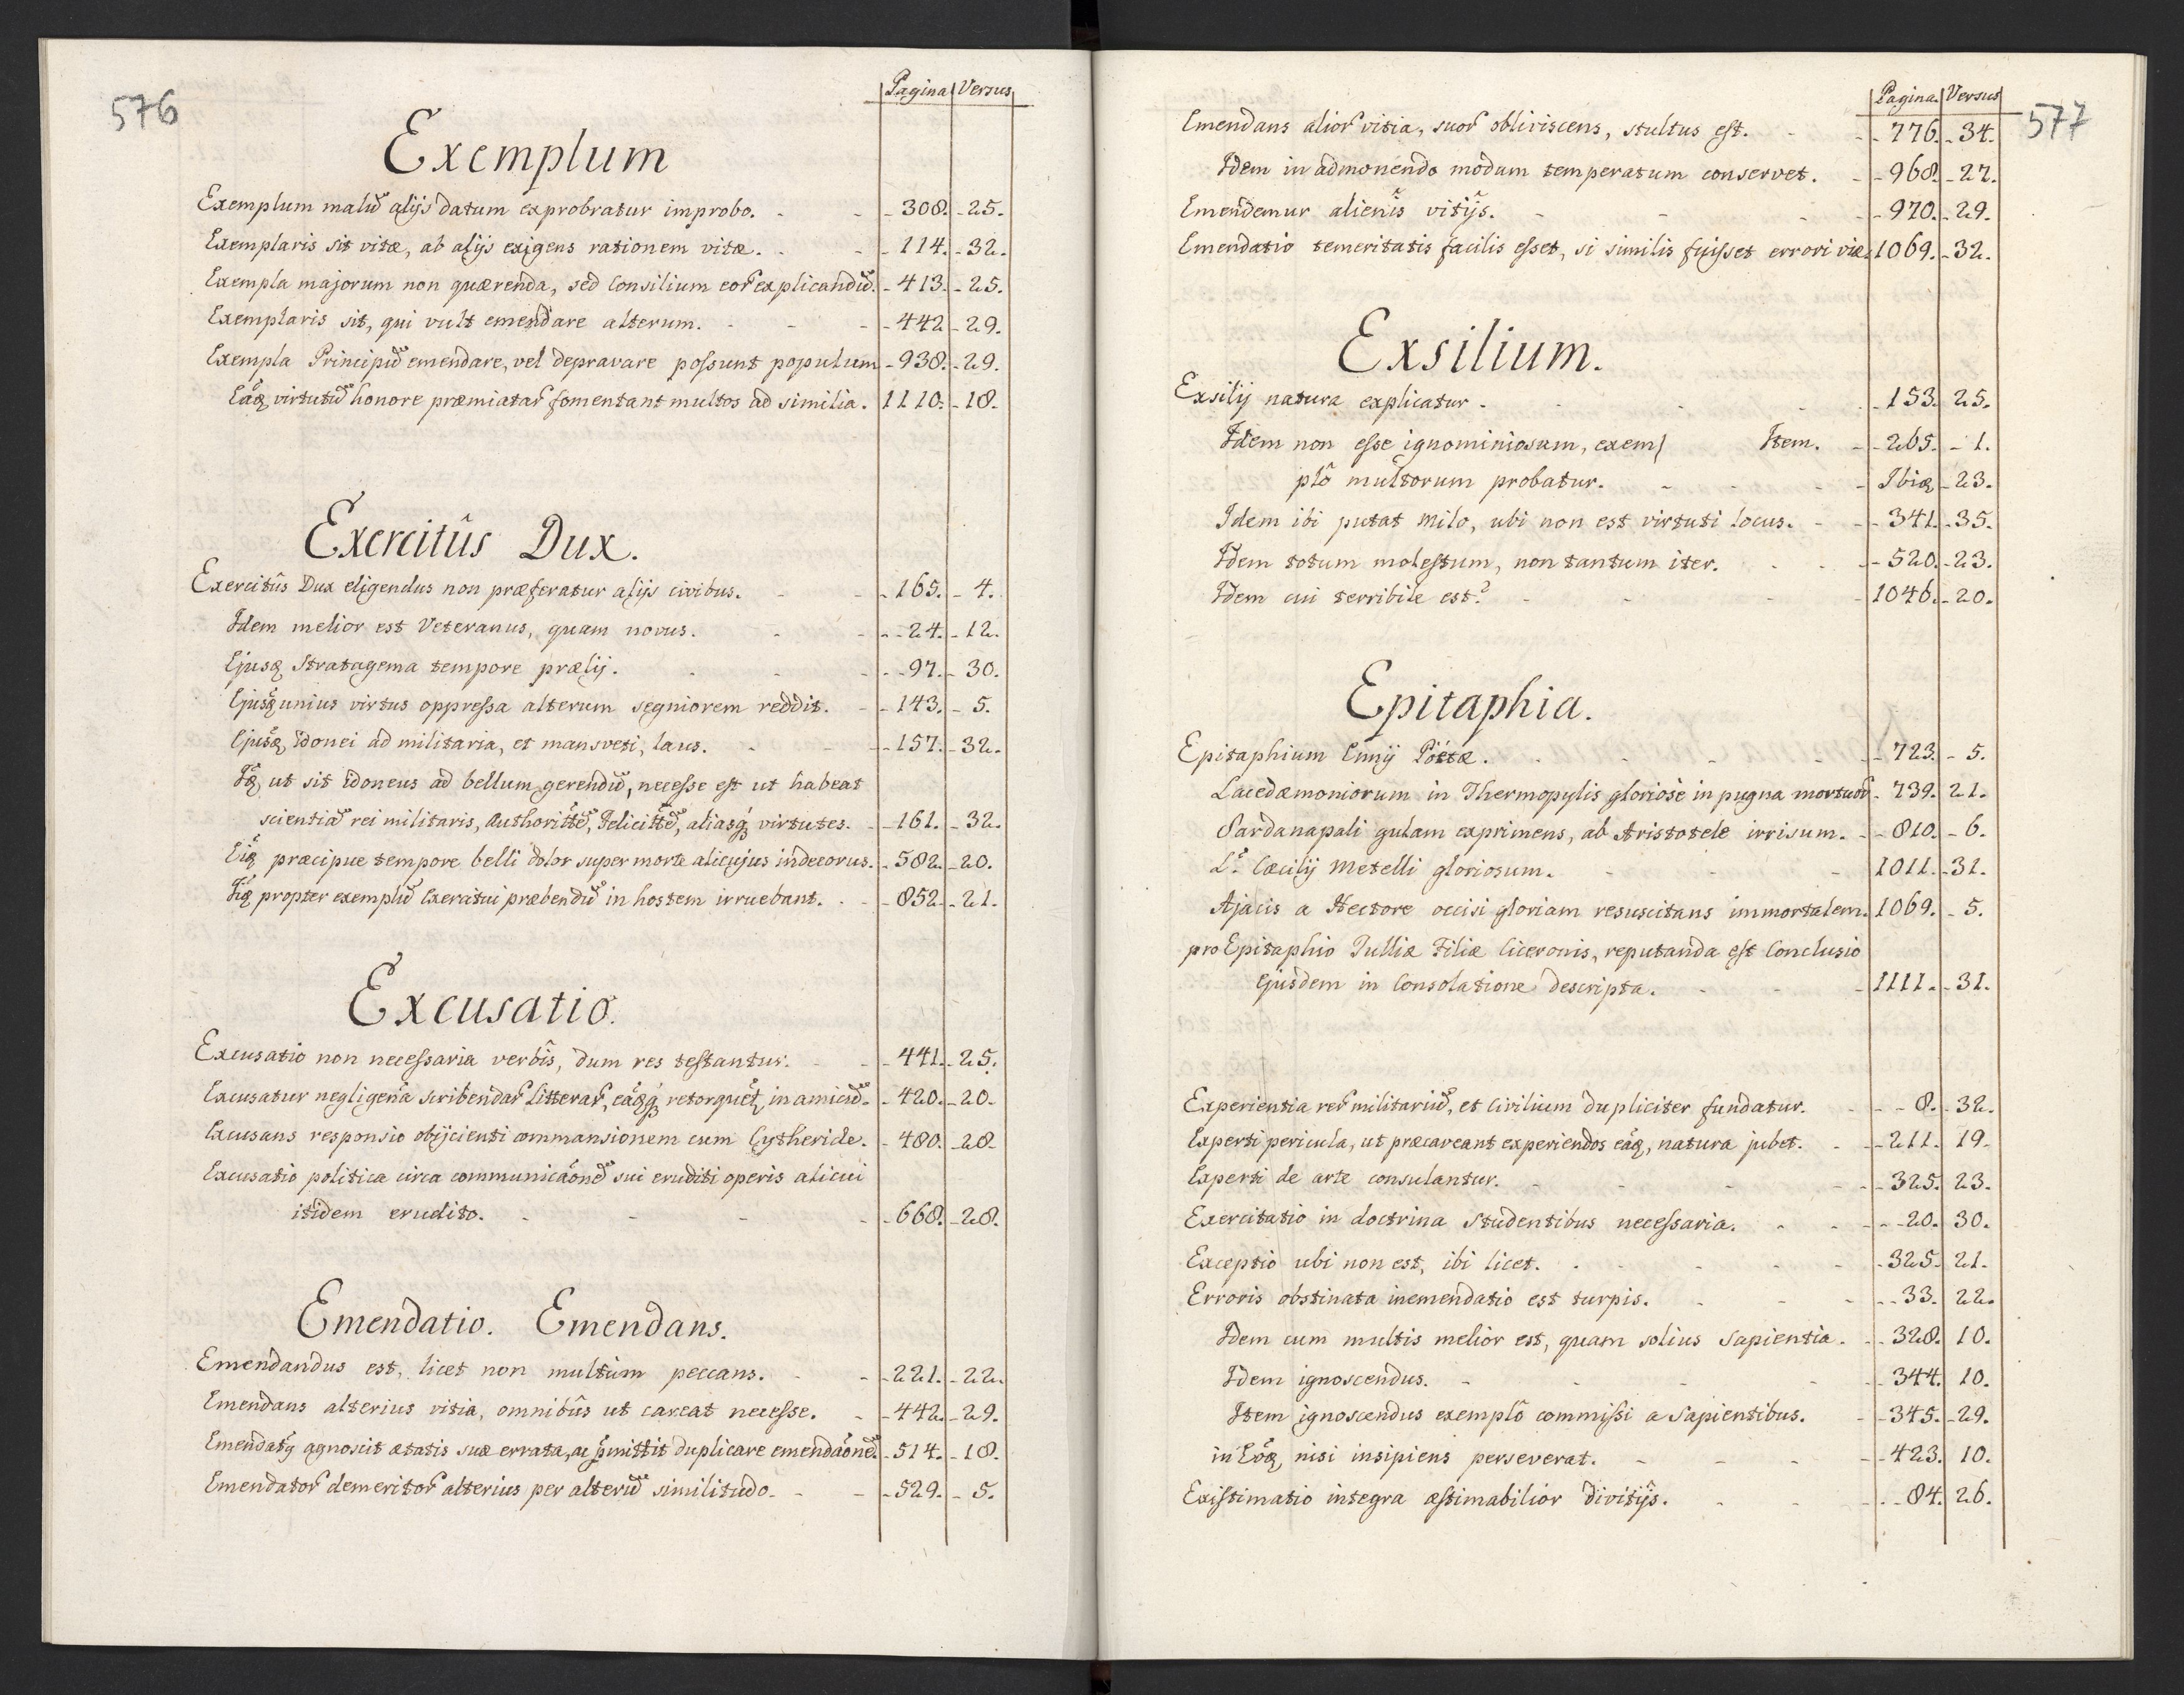 576
Pagina Versus
Exemplum
Exemplum malū alijs datum exprobratur improbo. - - 308. - 25.
Exemplaris sit vitæ, ab alijs exigens rationem vitæ. - - 114. - 32.
Exempla majorum non quærenda, sed Consilium eor explicandū. - 413. - 25.
Exemplaris sit, qui vult emendare alterum. - - 442 - 29.
Exempla Principū emendare, vel depravare possunt populum - 938. - 29.
virtutū honore præmiatar fomentant multos ad similia. 1110. - 18.
Exercitûs Dux.
Exercitûs Dux eligendus non præferatur alijs civibus. - - 165. - 4.
Idem melior est Veteranus, quam novus. - - 24. - 12.
Ejusq Stratagema tempore prælij. - - 97. - 30.
Ejusq unius virtus oppressa alterum segniorem reddit. - - 143. - 5.
Ejusq idonei ad militaria, et mansveti, laus. - - 157. - 32.
ut sit idoneus ad bellum gerendū, necesse est ut habeat
scientiā rei militaris, Authoritte, Felicitte, aliasq virtutes. - 161. - 32.
præcipue tempore belli dolor super morte alicujus indecorus. - 582. - 20.
propter exemplū Exercitui præbendū in hostem irruebant. - - 852 - 21.
Excusatio.
Excusatio non necessaria verbîs, dum res testantur. - - 441. - 25.
Excusatur negligena scribendar Litterar, eāqq retorquet in amicū. - 420. - 20.
Excusans responsio obijcienti commansionem cum Cytheride. - 480. - 28.
Excusatio politica circa communicaōnē sui eruditi operis alicui
itidem erudito. - - - - 668. - 28.
Emendatio. Emendans.
Emendandus est, licet non multùm peccans. - - 221. - 22.
Emendans alterius vitia, omnibûs ut careat necesse. - - 442. - 29.
Emendatq agnoscit ætatis suæ errata, ac pmittit duplicare emendaōnē. - 514. - 18.
Emendator demeritor alterius per alterū similitudo. - - 529. - 5.
577
Pagina. Versus
Emendans alior vitia, suor obliviscens, stultus est. - - 776. - 34.
Idem in admonendo modum temperatum conservet. - - 968. - 27.
Emendemur alienîs vitijs. - - - - 970. - 29.
Emendatio temeritatis facilis esset, si similis fuisset errori viæ. 1069. - 32.
Exsilium.
Exsilij natura explicatur. - - - 153. 25.
Idem non esse ignominiosum, exem/ Item. - - 265. - 1.
plô multorum probatur. - - - - Ibiq - 23.
Idem ibi putat Milo, ubi non est virtuti locus. - - 341. - 35.
Idem totum molestum, non tantum iter. - - - 520. - 23.
Idem cui terribile est? - - - 1046. - 20.
Epitaphia.
Epitaphium Ennij Poëtæ. - - - - 723. - 5.
Lacedæmoniorum in Thermopylis gloriosè in pugna mortuor. - 739. 21.
Sardanapali gulam exprimens, ab Aristotele irrisum. - - 810. - 6.
L. Cæcilij Metelli gloriosum. - - - 1011. - 31.
Ajacis a Hectore occisi gloriam resuscitans immortalem. 1069. - 5.
pro Epitaphio Tulliæ Filiæ Ciceronis, reputanda est Conclusio
Ejusdem in Consolatione descripta. - - - 1111. - 31.
Experientia rer militariū, et Civilium dupliciter fundatur. - - 8. - 32.
Experti pericula, ut præcaveant experiendos eāq, natura jubet. - - 211. 19.
Experti de arte consulantur. - - - - 325. 23.
Exercitatio in doctrina Studentibus necessaria. - - - 20. 30.
Exceptio ubi non est, ibi licet. - - - - 325. 21.
Erroris obstinata inemendatio est turpis. - - - 33. 22.
Idem cum multis melior est, quam solius Sapientia. - - 328. 10.
Idem ignoscendus. - - - - 344. 10.
Item ignoscendus exemplô commissi a Sapientibus. - - 345. - 29.
in Eōq, nisi insipiens perseverat. - - - - 423. 10.
Existimatio integra æstimabilior divitijs. - - - 84. 26.